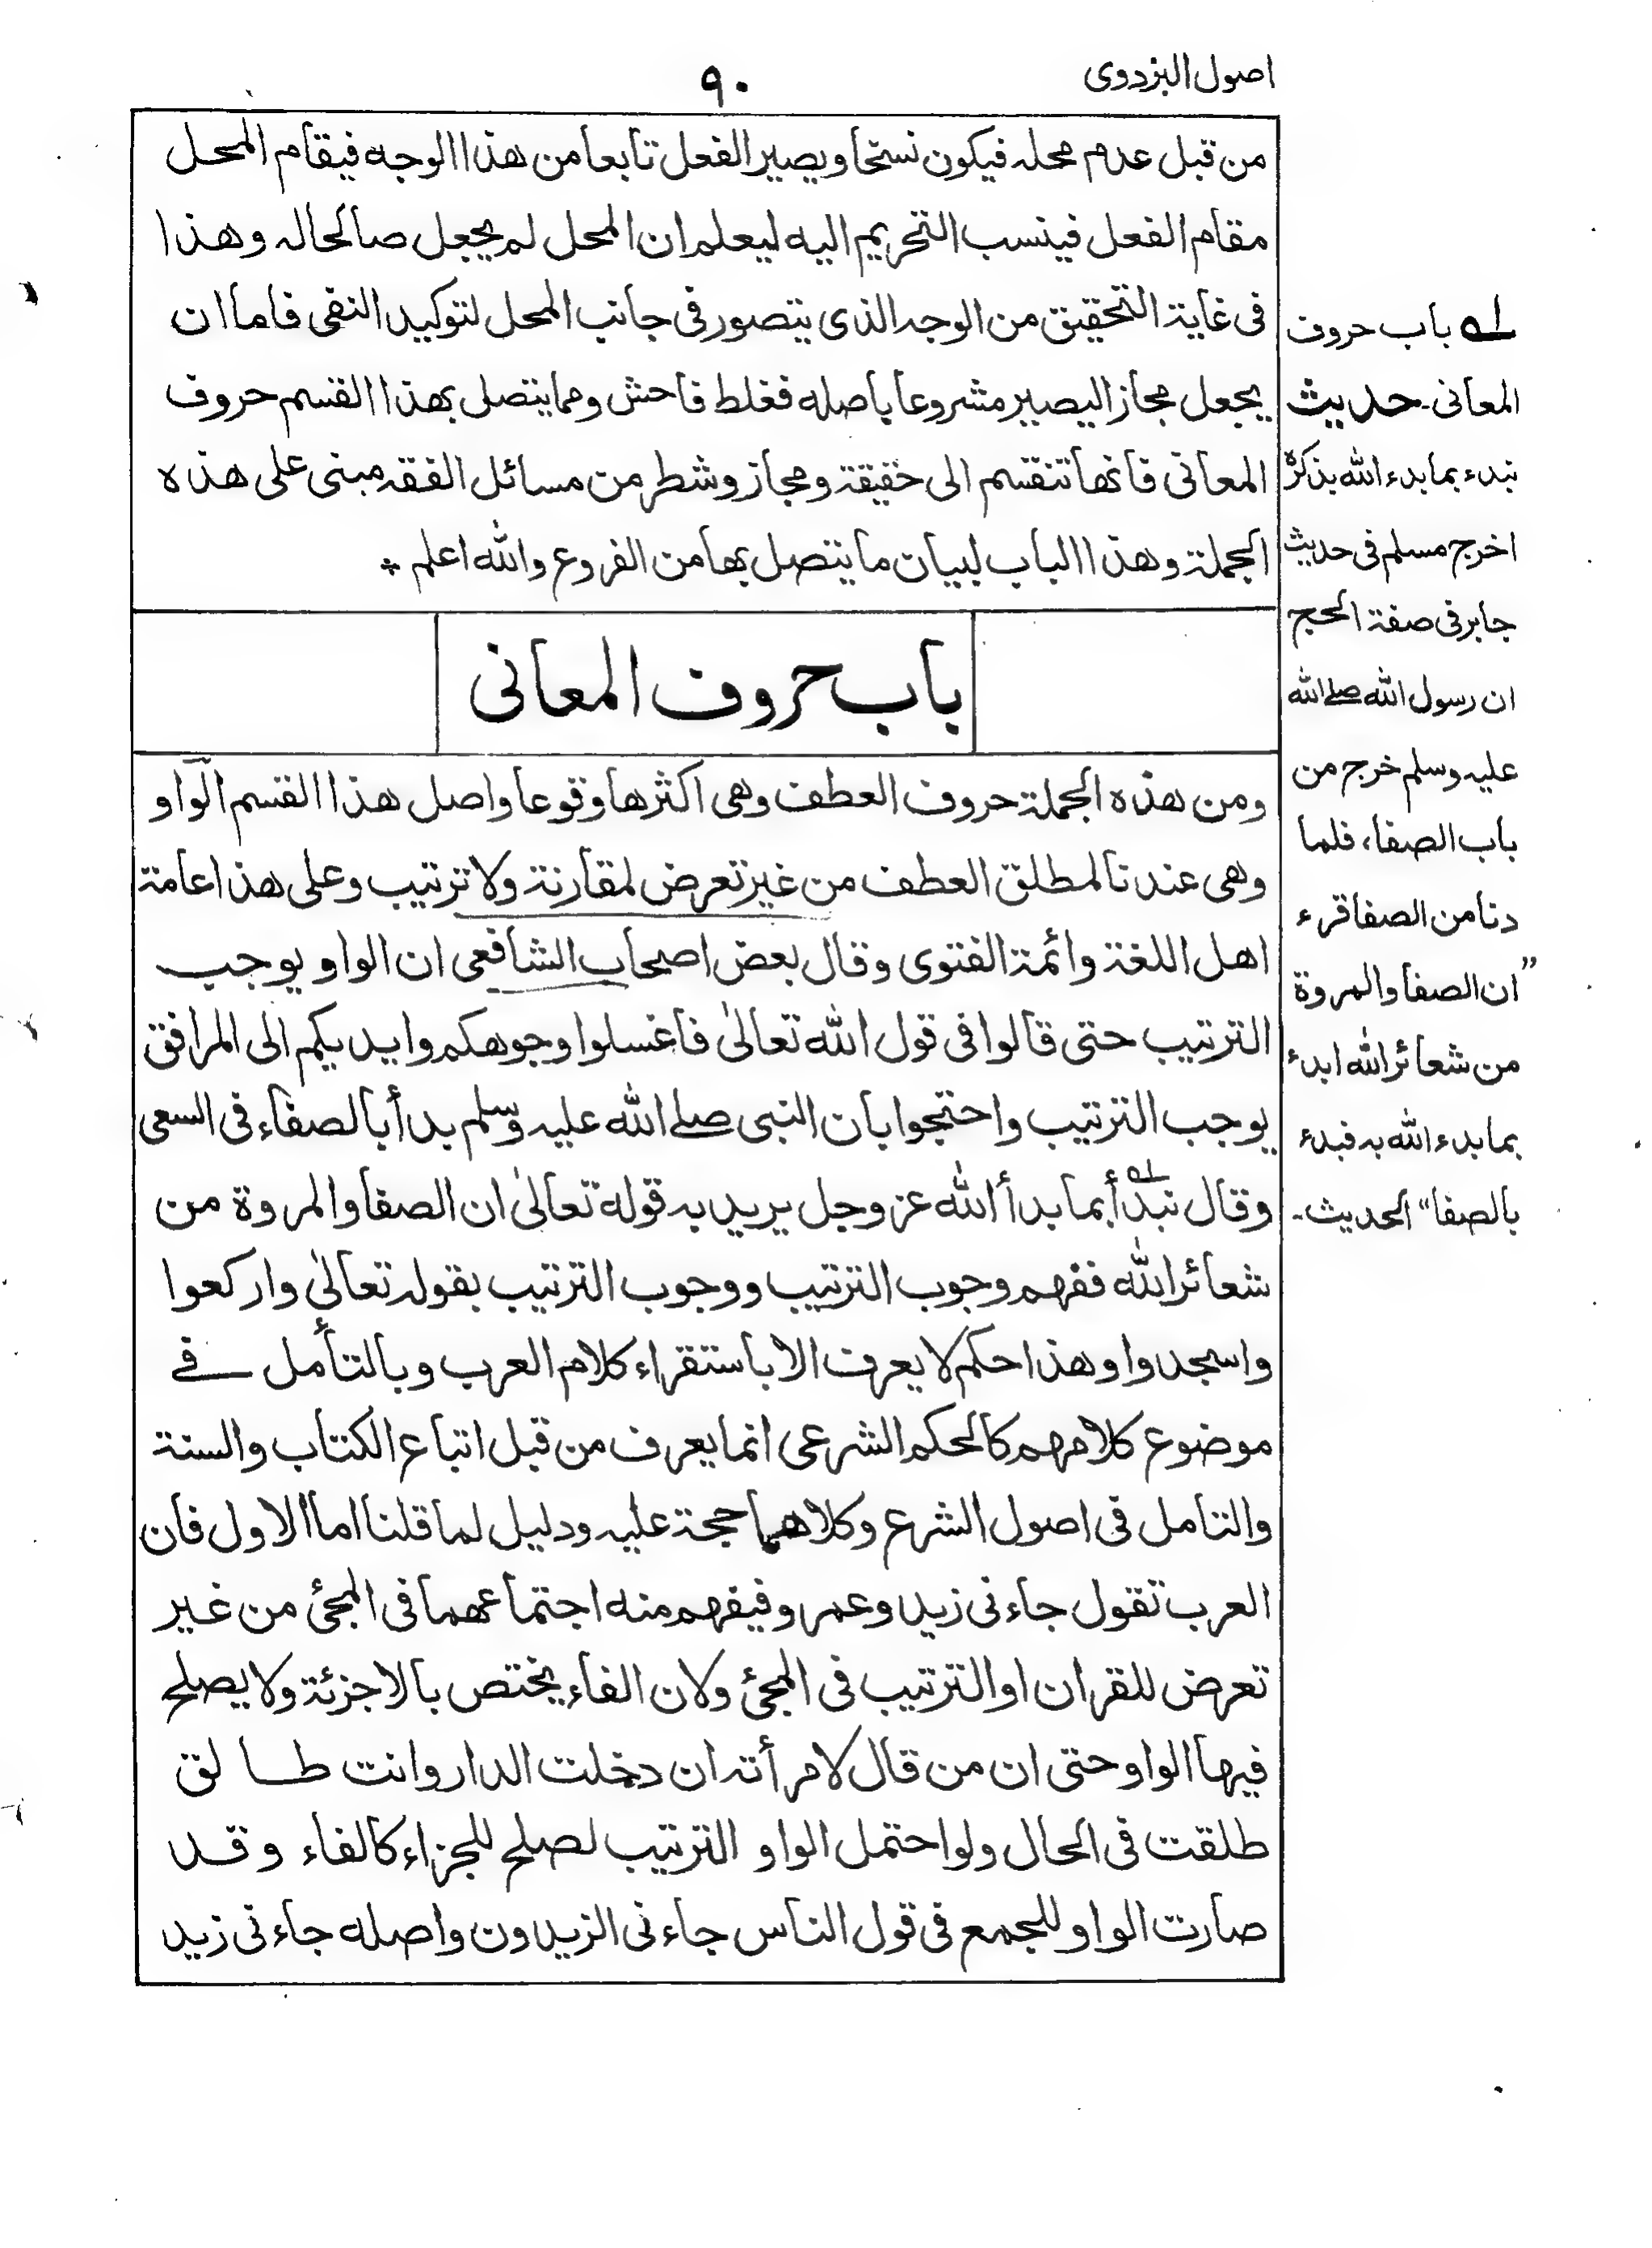 اصول البزدوی
٩٠
من قبل عدم محله فيكون نسخا ويصير الفعل تابعا من هذا الوجه فيقام المحل
مقام الفعل فينسب التحريم اليه ليعلم ان المحل لم يجعل صالحا له وهذا
فى غاية التحقيق من الوجه الذى يتصور فى جانب المحل لتوكيد النفى فاما ان
يجعل مجازا ليصير مشروعا باصله فغلط فاحش ومما يتصل بهذا القسم حروف
المعانى فانها تنقسم الى حقيقة ومجاز وشطر من مسائل الفقه مبنى على هذه
الجملة وهذا الباب لبيان ما يتصل بها من الفروع والله اعلم ٭
باب حروف المعانى
ومن هذه الجملة حروف العطف وهى اكثرها وقوعا واصل هذا القسم الواو
وهى عندنا لمطلق العطف من غير تعرض لمقارنة ولا ترتيب وعلى هذا عامة
اهل اللغة وائمة الفتوى وقال بعض اصحاب الشافعى ان الواو يوجب
الترتيب حتى قالوا فى قول الله تعالىٰ فاغسلوا وجوهكم وايديكم الى المرافق
يوجب الترتيب واحتجوا بان النبى صلے الله عليه وسلم بدأ بالصفاء فى السعى
وقال نبدأ ۱ـه بما بدأ الله عز وجل يريد به قوله تعالىٰ ان الصفا والمروة من
شعائر الله ففهم وجوب الترتيب ووجوب الترتيب بقوله تعالىٰ واركعوا
واسجدوا وهذا حكم لا يعرف الا باستقراء كلام العرب وبالتأمل فے
موضوع كلامهم كالحكم الشرعى انما يعرف من قبل اتباع الكتاب والسنة
والتامل فى اصول الشرع وكلاهما حجة عليه ودليل لما قلنا اما الاول فان
العرب تقول جاءنى زيد وعمرو فيفهم منه اجتماعهما فى المجئ من غير
تعرض للقران او الترتيب فى المجئ ولان الفاء يختص بالاجزئة ولا يصلح
فيها الواو حتى ان من قال لامرأته ان دخلت الدار وانت طالق
طلقت فى الحال ولو احتمل الواو الترتيب لصلح للجزاء كالفاء وقد
صارت الواو للجمع فى قول الناس جاءنى الزيدون واصله جاءنى زيد
۱ـه باب حروف
المعانى۔ حديث
نبدء بما بدء الله بذكره
اخرج مسلم فى حديث
جابر فى صفة الحج
ان رسول الله صلے الله
عليه وسلم خرج من
باب الصفا، فلما
دنا من الصفا قرء
”ان الصفا والمروة
من شعائر الله ابدء
بما بدء الله به فبدء
بالصفا“ الحديث۔